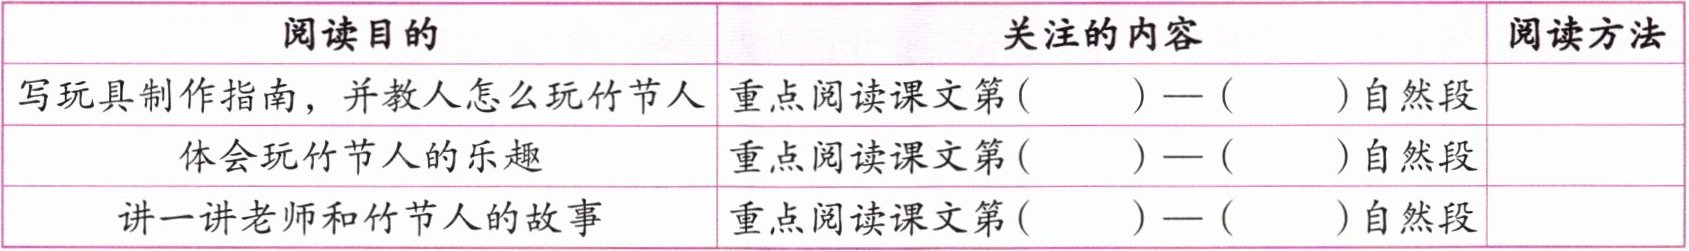 阅读目的 关注的内容 阅读方法
写玩具制作指南，并教人怎么玩竹节人 重点阅读课文第（ ）—（ ）自然段
体会玩竹节人的乐趣 重点阅读课文第（ ）—（ ）自然段
讲一讲老师和竹节人的故事 重点阅读课文第（ ）—（ ）自然段